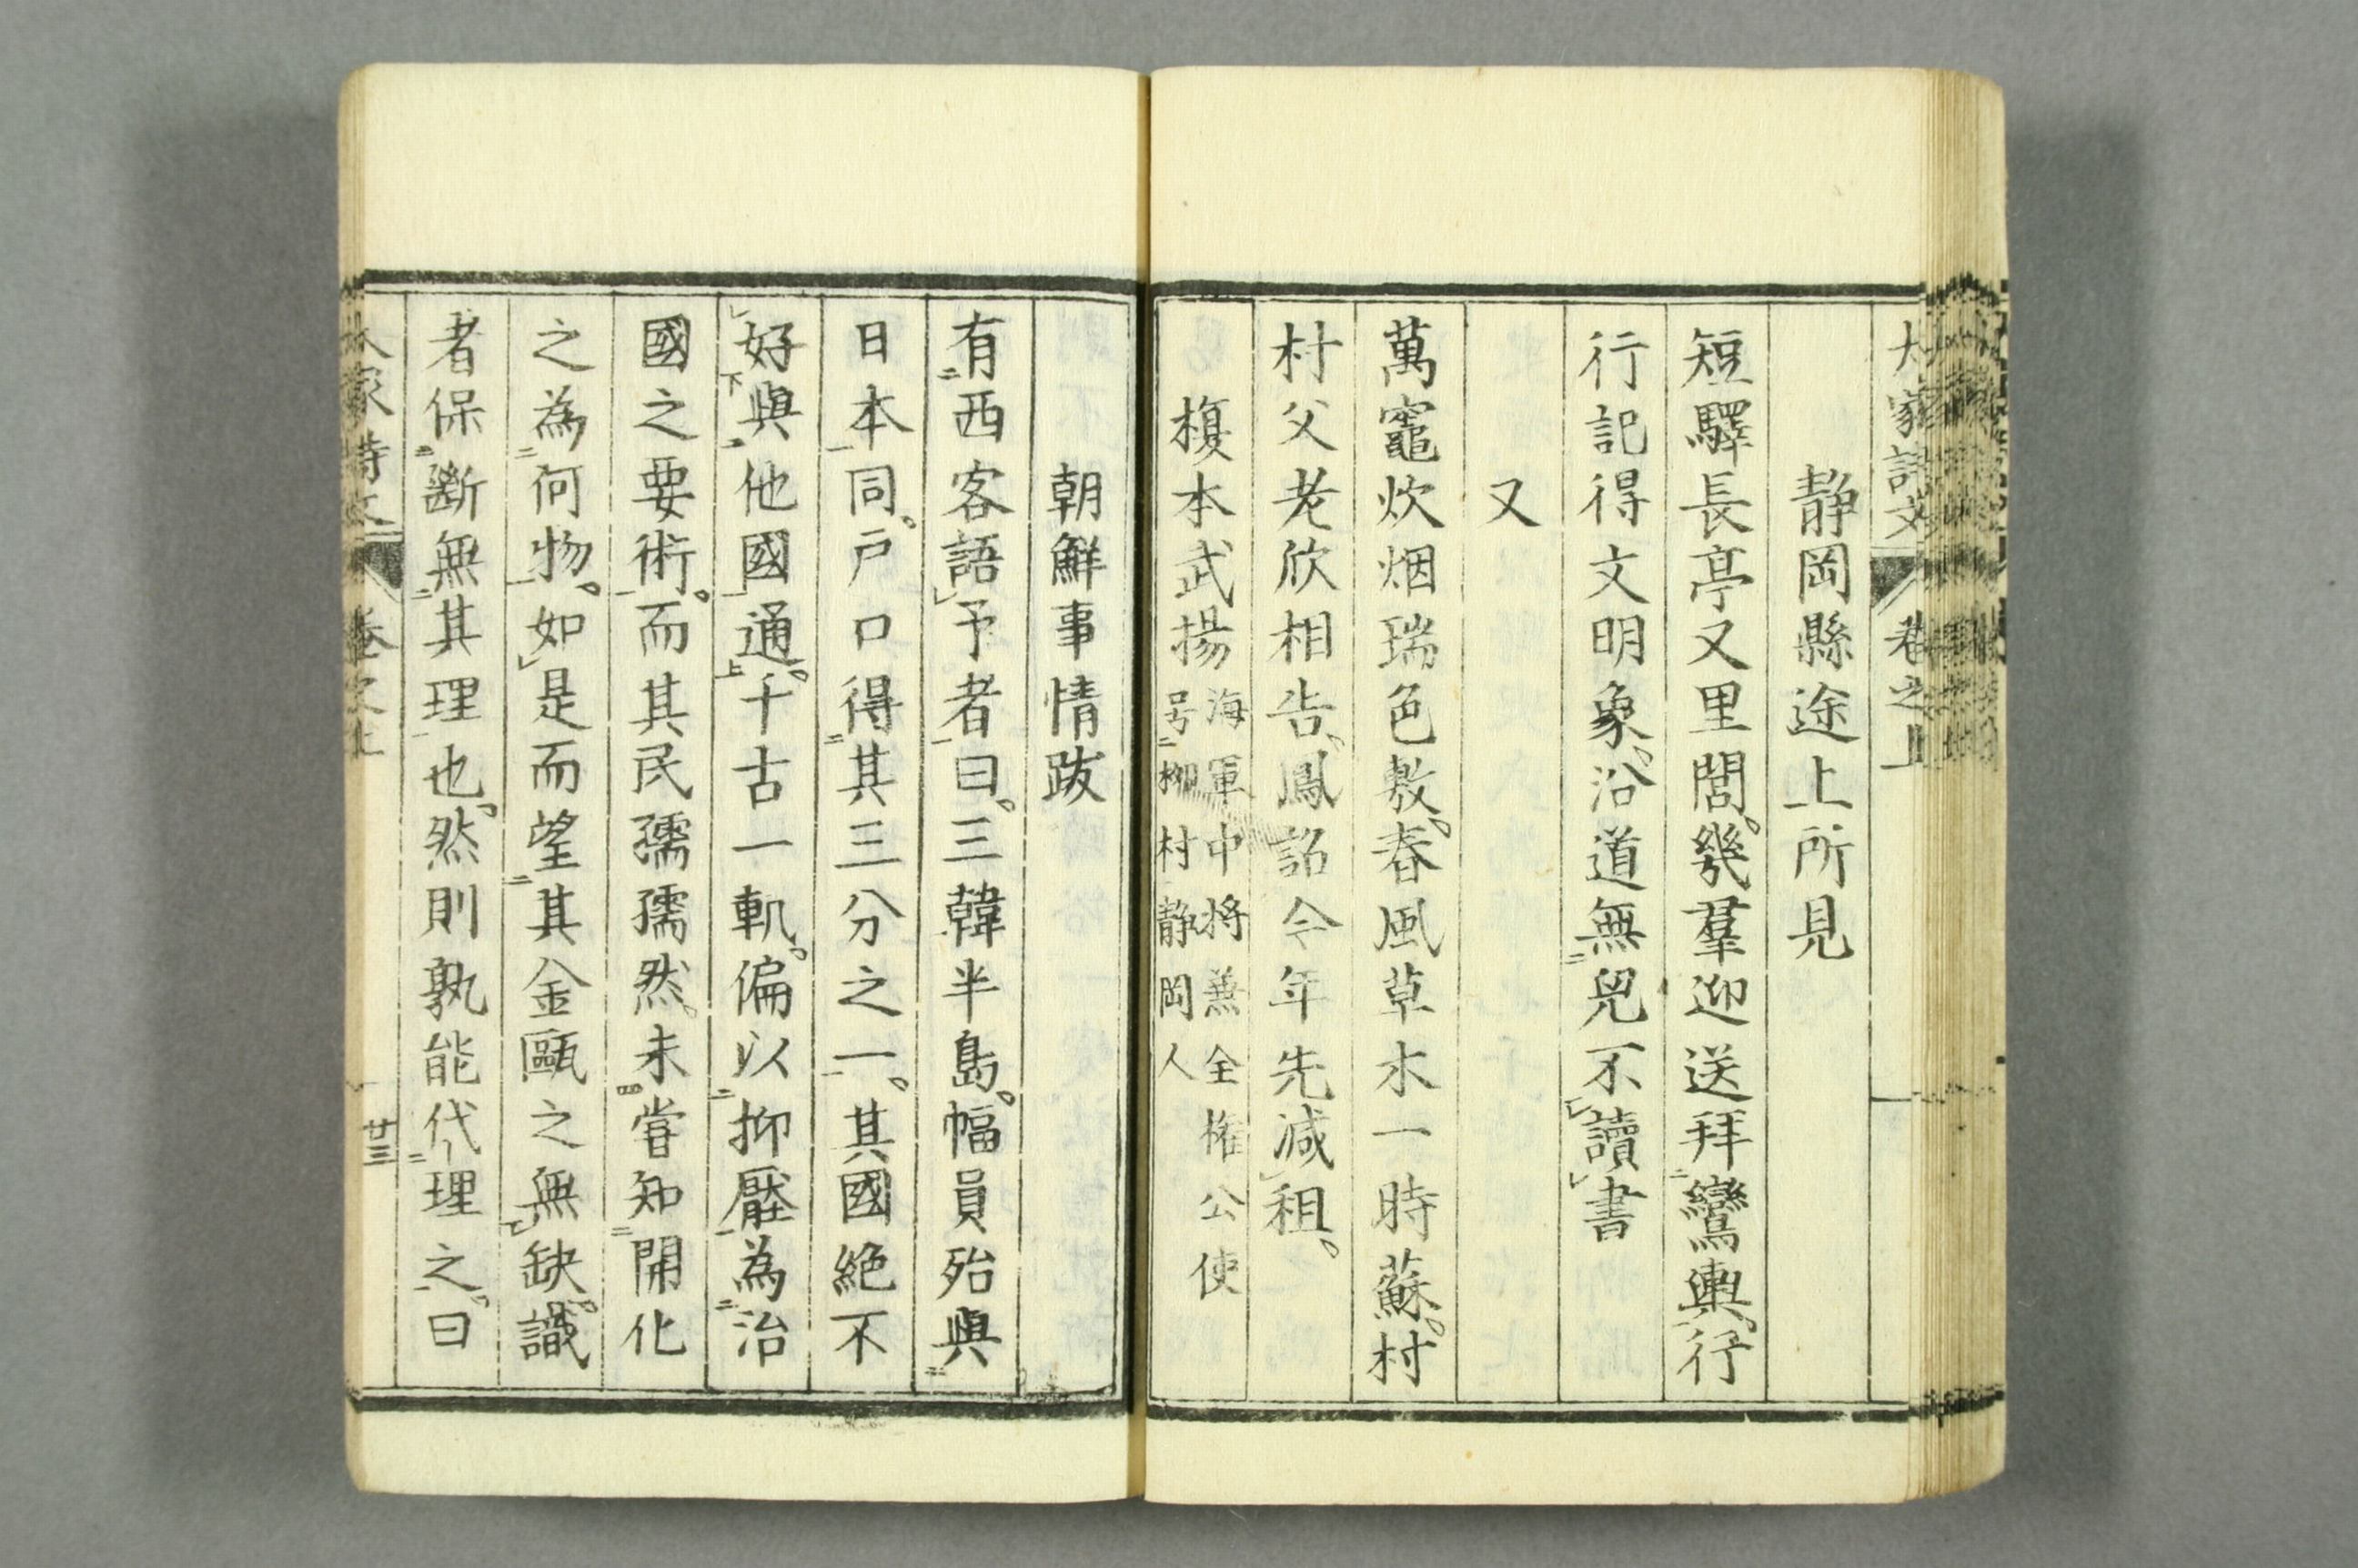 大家詩文 卷之上
静岡縣途上所見
短驛長亭又里閭。幾羣迎送拜鸞輿。行
行記得文明象。沿道無皃不讀書
又
萬竈炊烟瑞色敷。春風草木一時蘇。村
村父老欣相告。鳳詔今年先減租。
榎本武揚
海軍中将兼全権公使
号柳村静岡人
朝鮮事情跋
有西客語予者曰。三韓半島。幅員殆與
日本同。戸口得其三分之一。其國絶不
好與他國通。千古一軌。偏以抑壓為治
國之要術。而其民孺孺然。未嘗知開化
之為何物。如是而望其金甌之無缺。識
者保斷無其理也。然則孰能代理之。曰
廿三